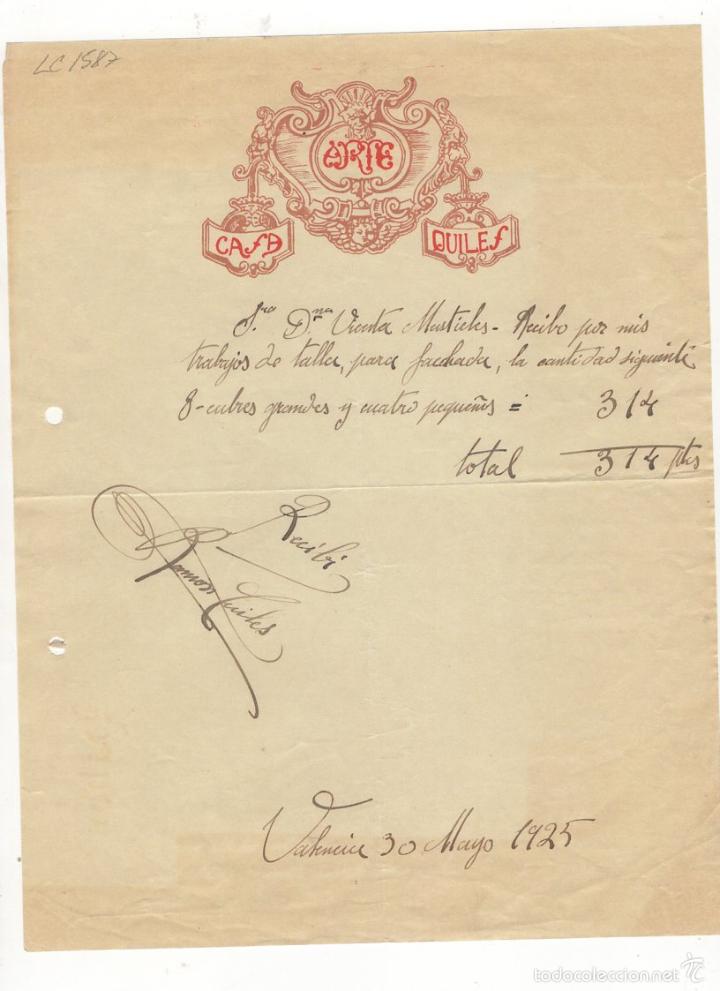 LC 1587
ARTE
CASA QUILES
Sra Dna Vicenta Mustieles - Recibo por mis
trabajos de talla, para fachada, la cantidad siguiente
8 - cubres grandes y cuatro pequeños = 314
total 314 ptas
Recibi
Ramon Quiles
Valencia 30 Mayo 1925
todocoleccion.net